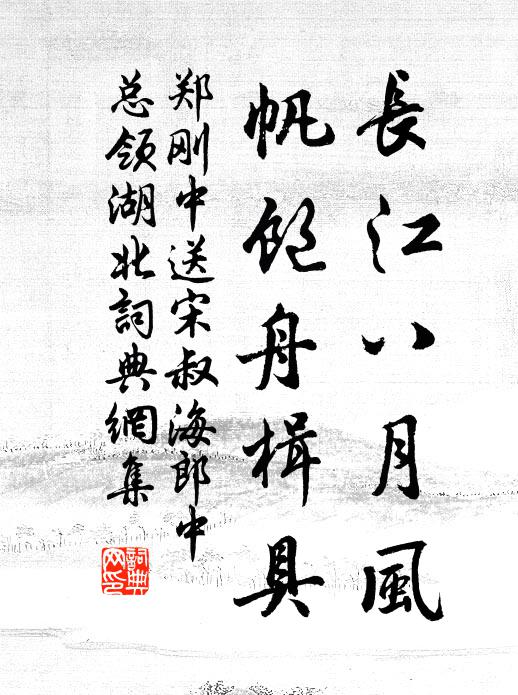 長江八月風
帆飽舟楫具
郑刚中送宋叔海郎中
总領湖北詞典網集
詞典
网印